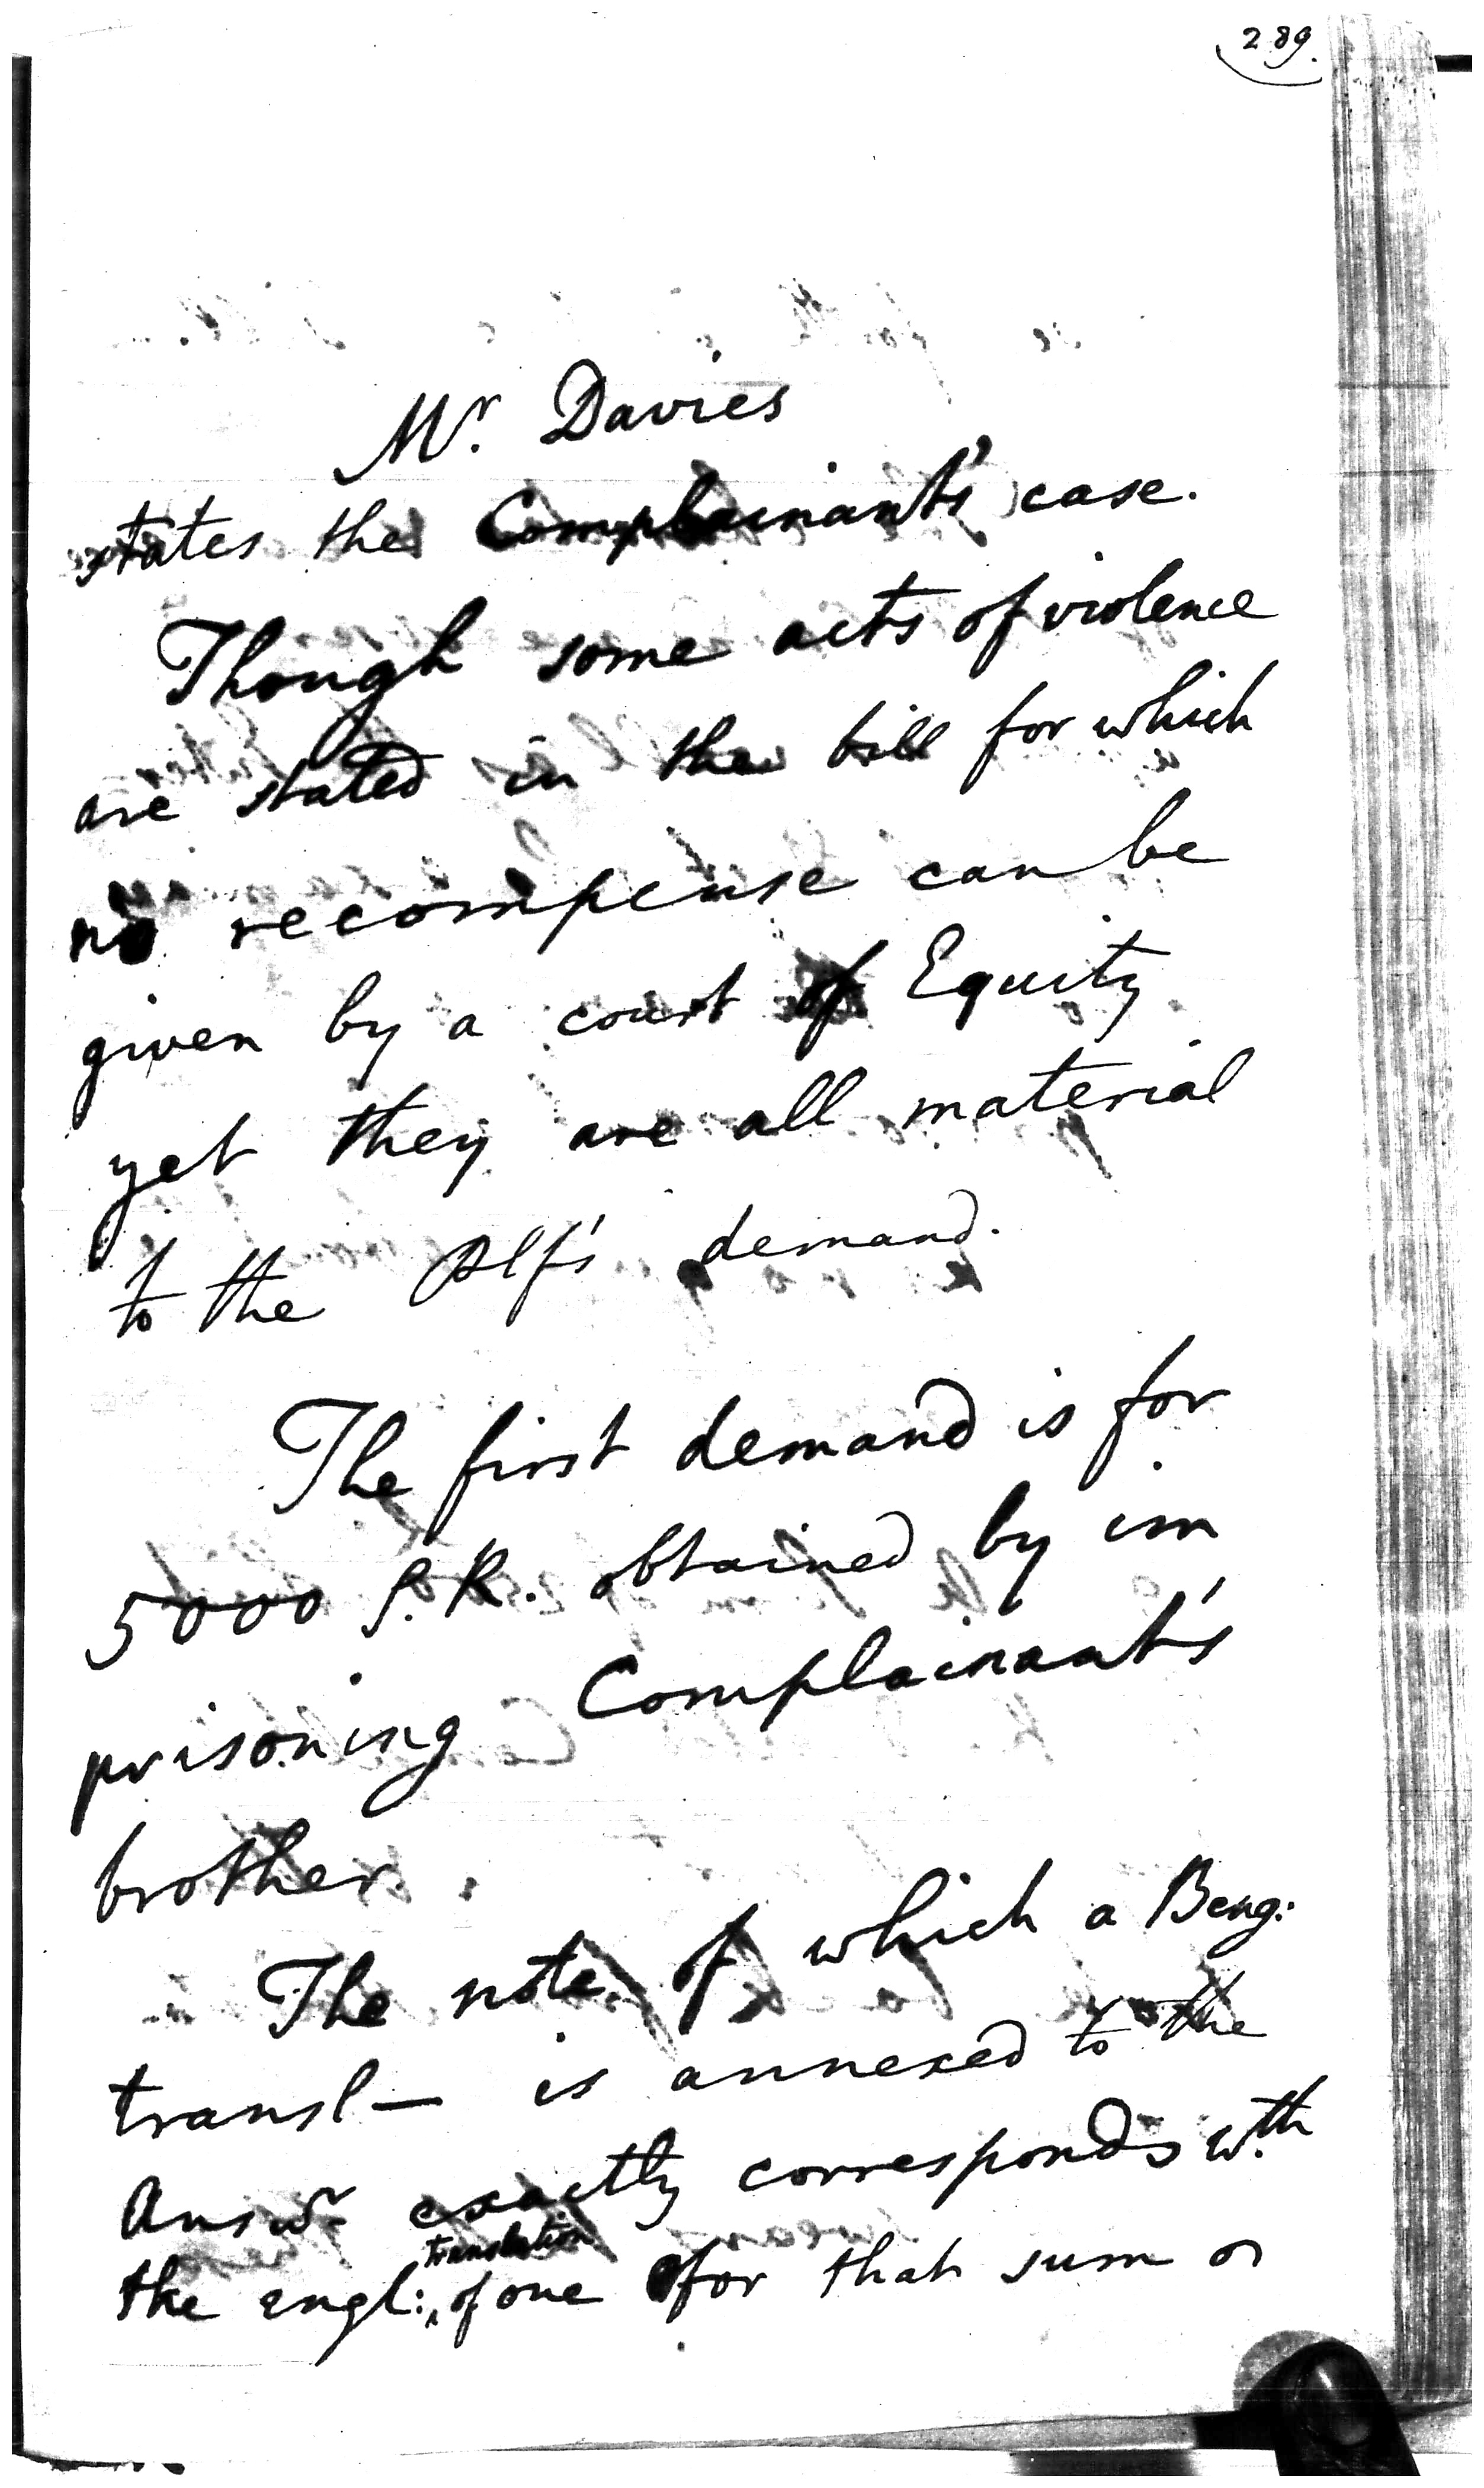 289.
Mr. Davies
states the Complainant's case.
Though some acts of violence
are stated in the bill for which
no recompense can be
given by a court of Equity
yet they are all material
to the Plf's demand.
The first demand is for
5000 S.R. obtained by im
prisoning Complainant's
brother.
The note of which a Beng:
transl— is annexed to the
Answr exactly corresponds wth
translation
the engl: ‸ of one for that sum or